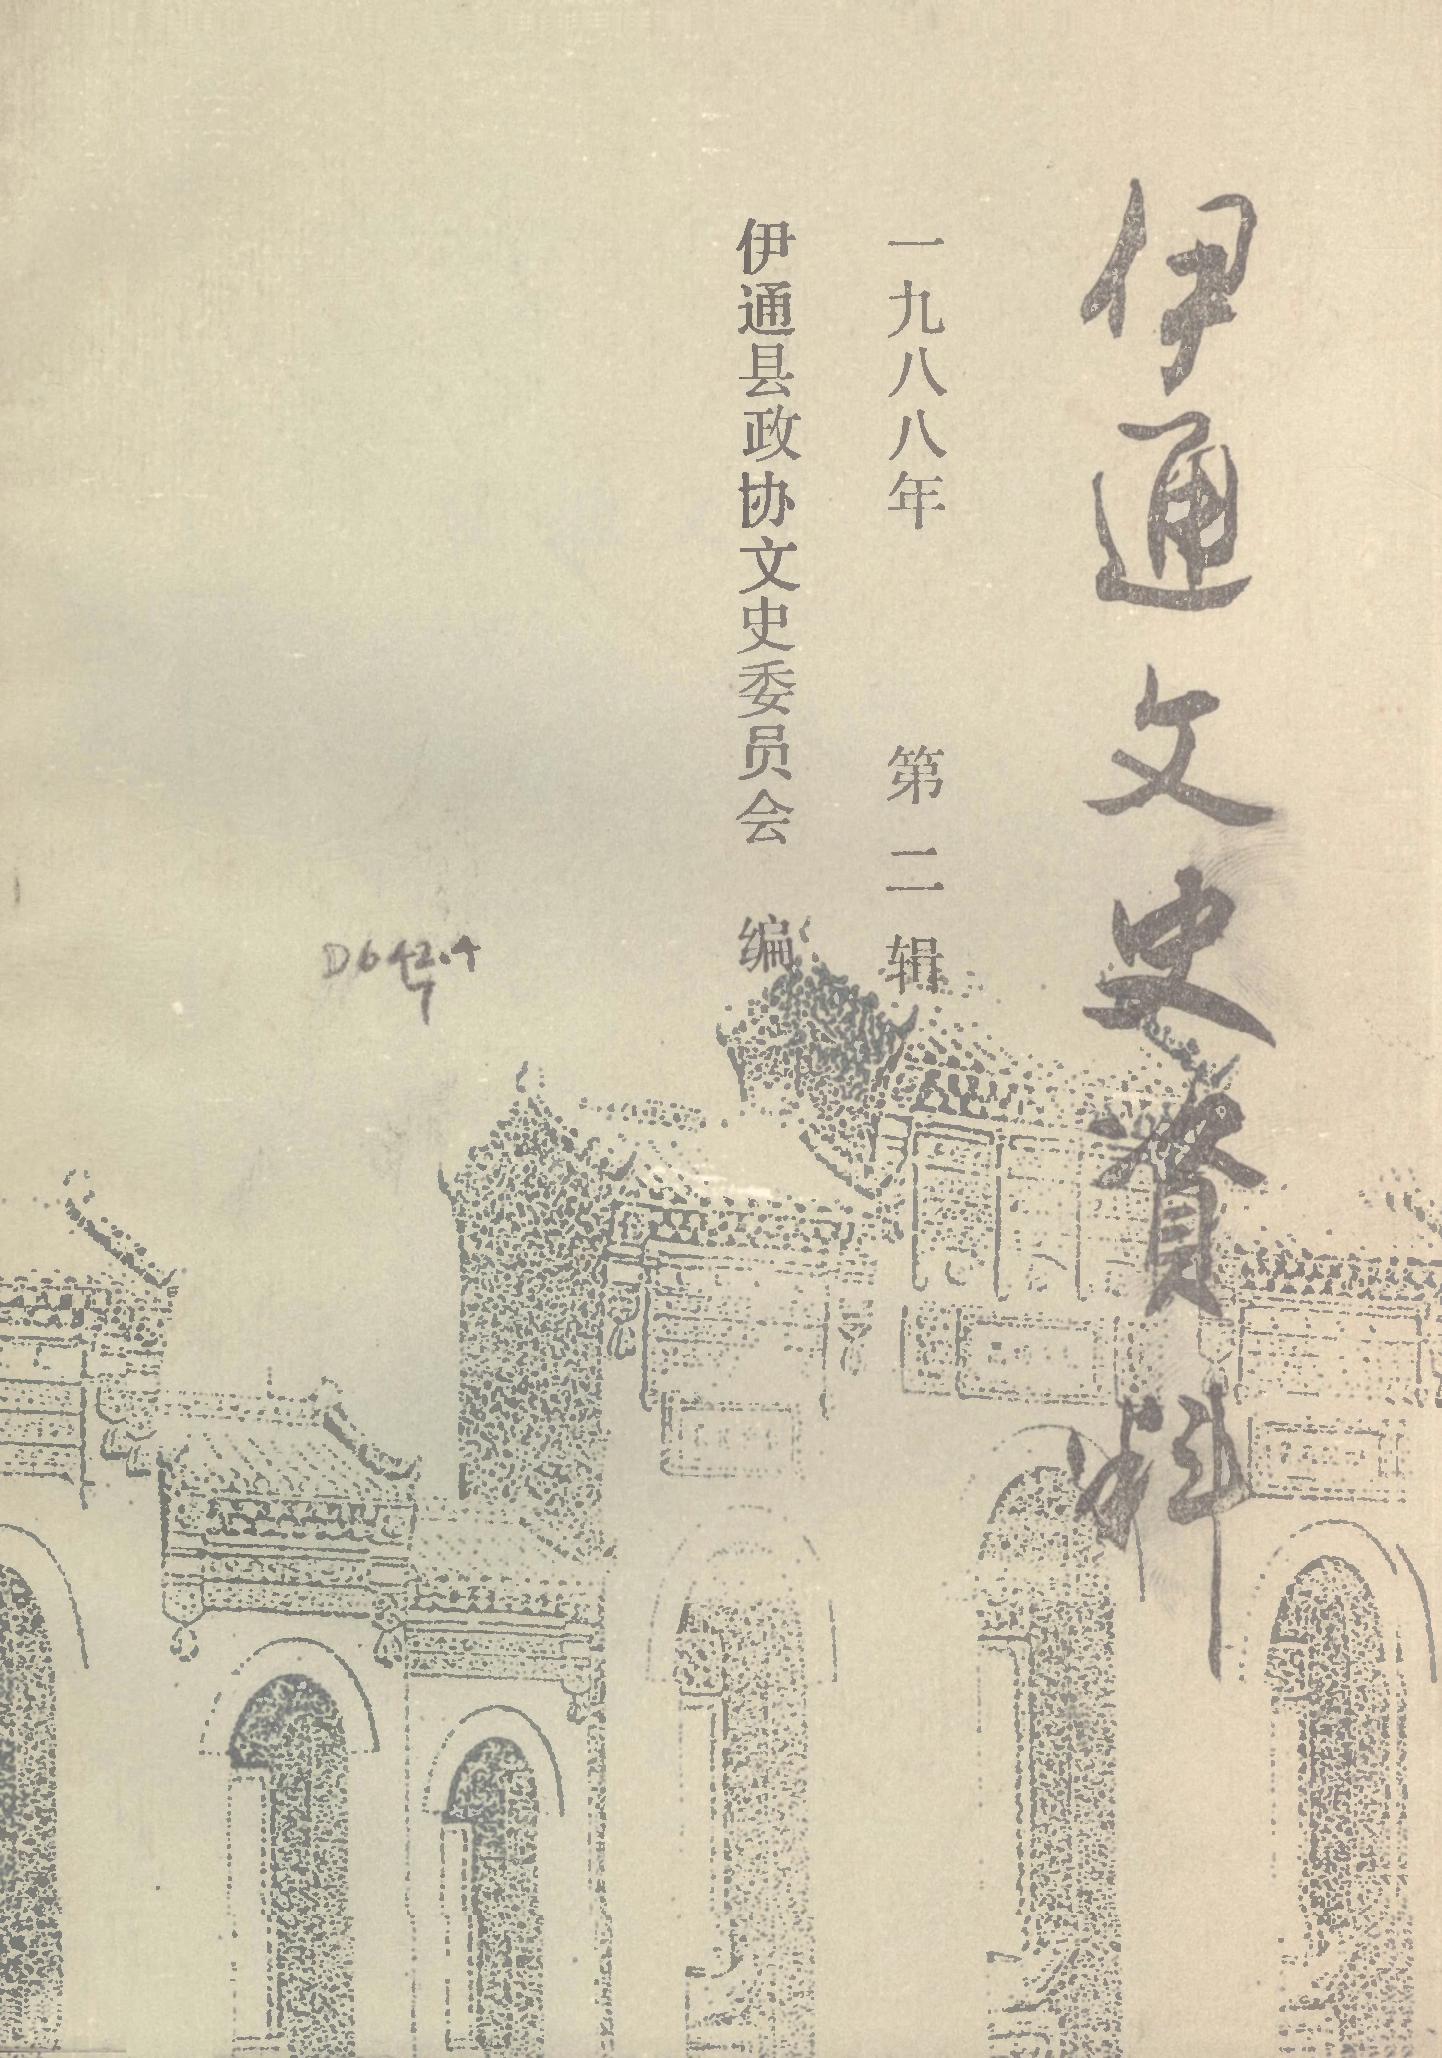 伊通文史資料
一九八八年 第二辑
伊通县政协文史委员会 编
D642.4